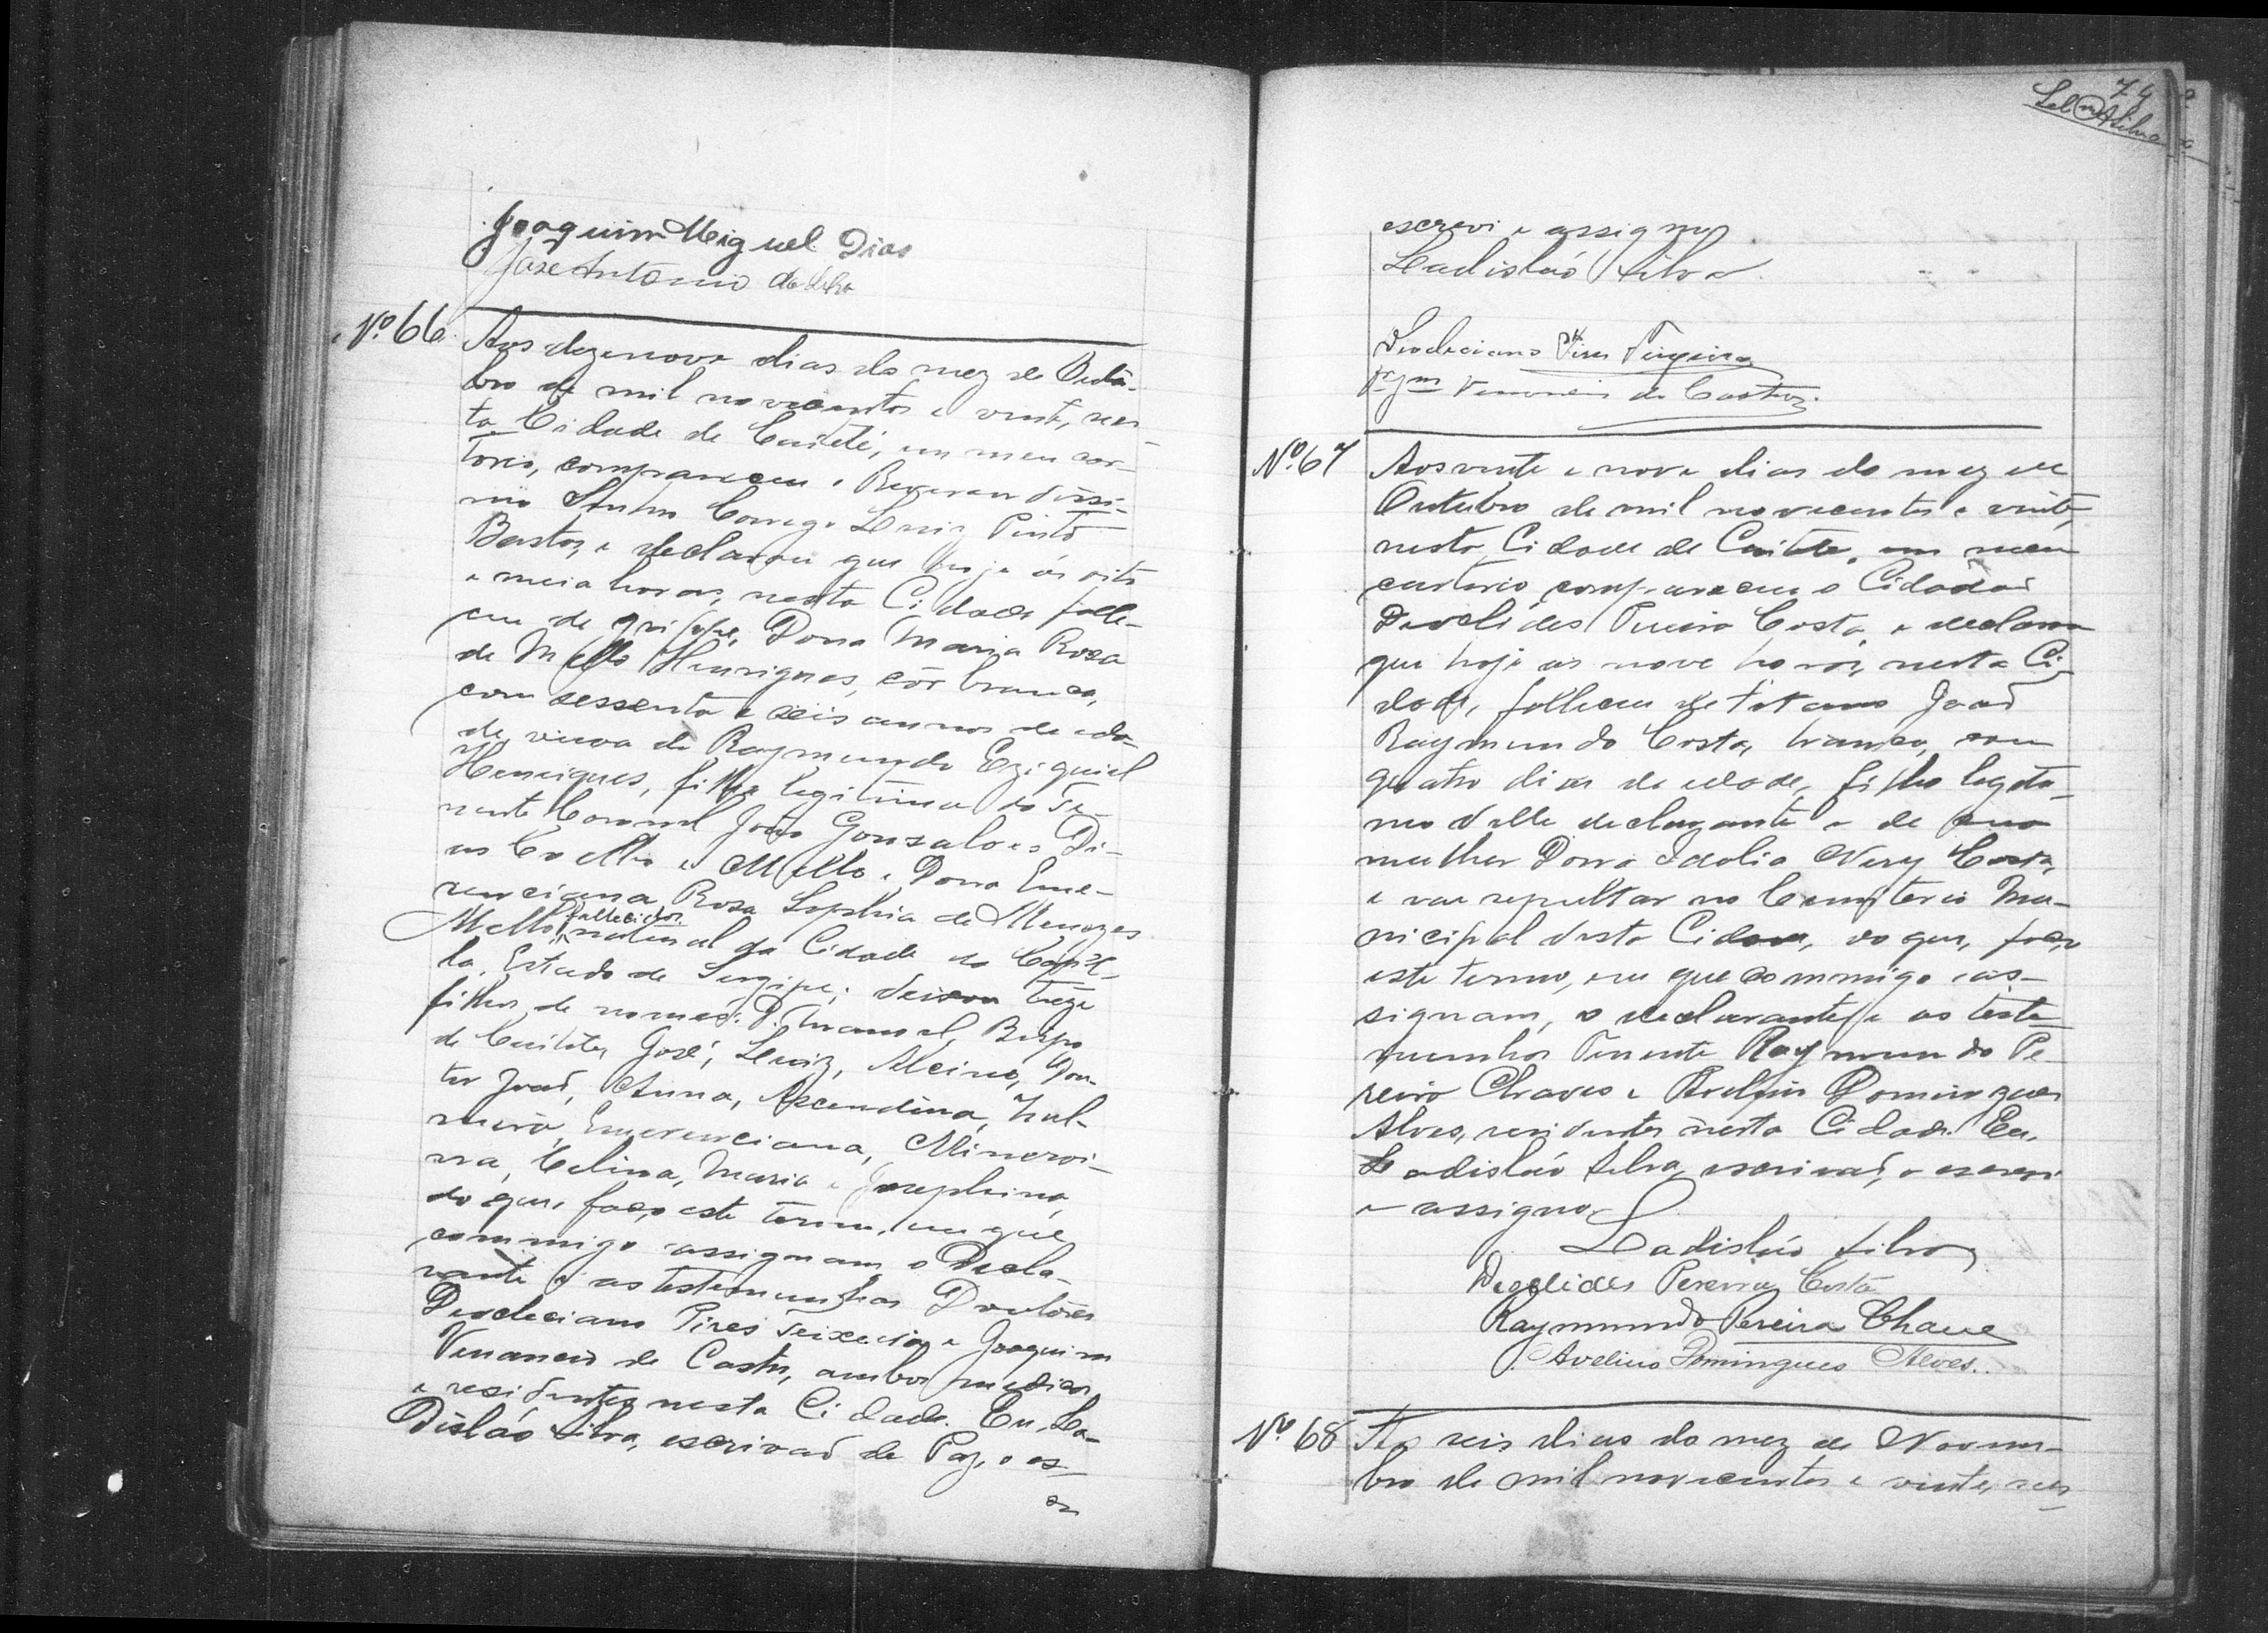 Joaquim Miguel Dias
José Antonio da Silva
Nº 66 Aos dezenove dias do mez de Outu-
bro de mil novecentos e vinte, nes-
ta Cidade de Caiteté, em meu car-
torio, compareceu o Reverendissi-
mo Senhor Conego Luiz Pinto
Bastos, e declarou que hoje ás oito
e meia horas, nesta Cidade falle-
ceu de grippe, Dona Maria Rosa
de Mello Henriques, côr branca,
com sessenta e seis annos de eda-
de, viuva de Raymundo Eziquiel
Henriques, filha legitima do Te-
nente Coronel João Gonsalves Di-
as Coelho e Mello e Dona Eme-
renciana Rosa Sophia de Menezes
Mello, fallecidos, natural da Cidade da Capel-
la, Estado de Sergipe; deixou treze
filhos de nomes: D. Manoel, Bispo
de Caiteté, José, Luiz, Alcino, Dou-
tor João, Anna, Ascendina, Zul-
mira, Emerenciana, Minervi-
na, Celina, Maria e Josephina,
do que, faço este termo, em que
commigo assignam o Decla-
rante e as testemunhas Doutores
Deocleciano Pires Teixeira e Joaquim
Venancio de Castro, ambos medicos
e residentes nesta Cidade. Eu, La-
disláo Silva, escrivaõ de Paz, o es-
74
escrevi e assigno
Ladisláo Silva
Deocleciano Pires Teixeira
Jqm Venancio de Castro
Nº 67 Aos vinte e nove dias do mez de
Outubro de mil novecentos e vinte,
nesta Cidade de Caiteté, em meu
cartorio compareceu o Cidadaõ
Deoclides Pereira Costa, e declarou
que hoje as nove horas, nesta Ci-
dade, falleceu de tetano Joaõ
Raymundo Costa, branco, com
quatro dias de edade, filho legiti-
mo delle declarante e de sua
mulher Dona Idalia Nery Costa,
e vae sepultar no Cemiterio Mu-
nicipal desta Cidade, do que, faço
este termo, em que commigo as-
signam, o declarante e as teste-
munhas Tenente Raymundo Pe-
reira Chaves e Avelino Domingues
Alves, residentes nesta Cidade. Eu,
Ladisláo Silva, escrivaõ, o escrevi
e assigno.
Ladisláo Silva
Deoclides Pereira Costa
Raymundo Pereira Chaves
Avelino Domingues Alves.
Nº 68 Aos seis dias do mez de Novem-
bro de mil novecentos e vinte, nes-